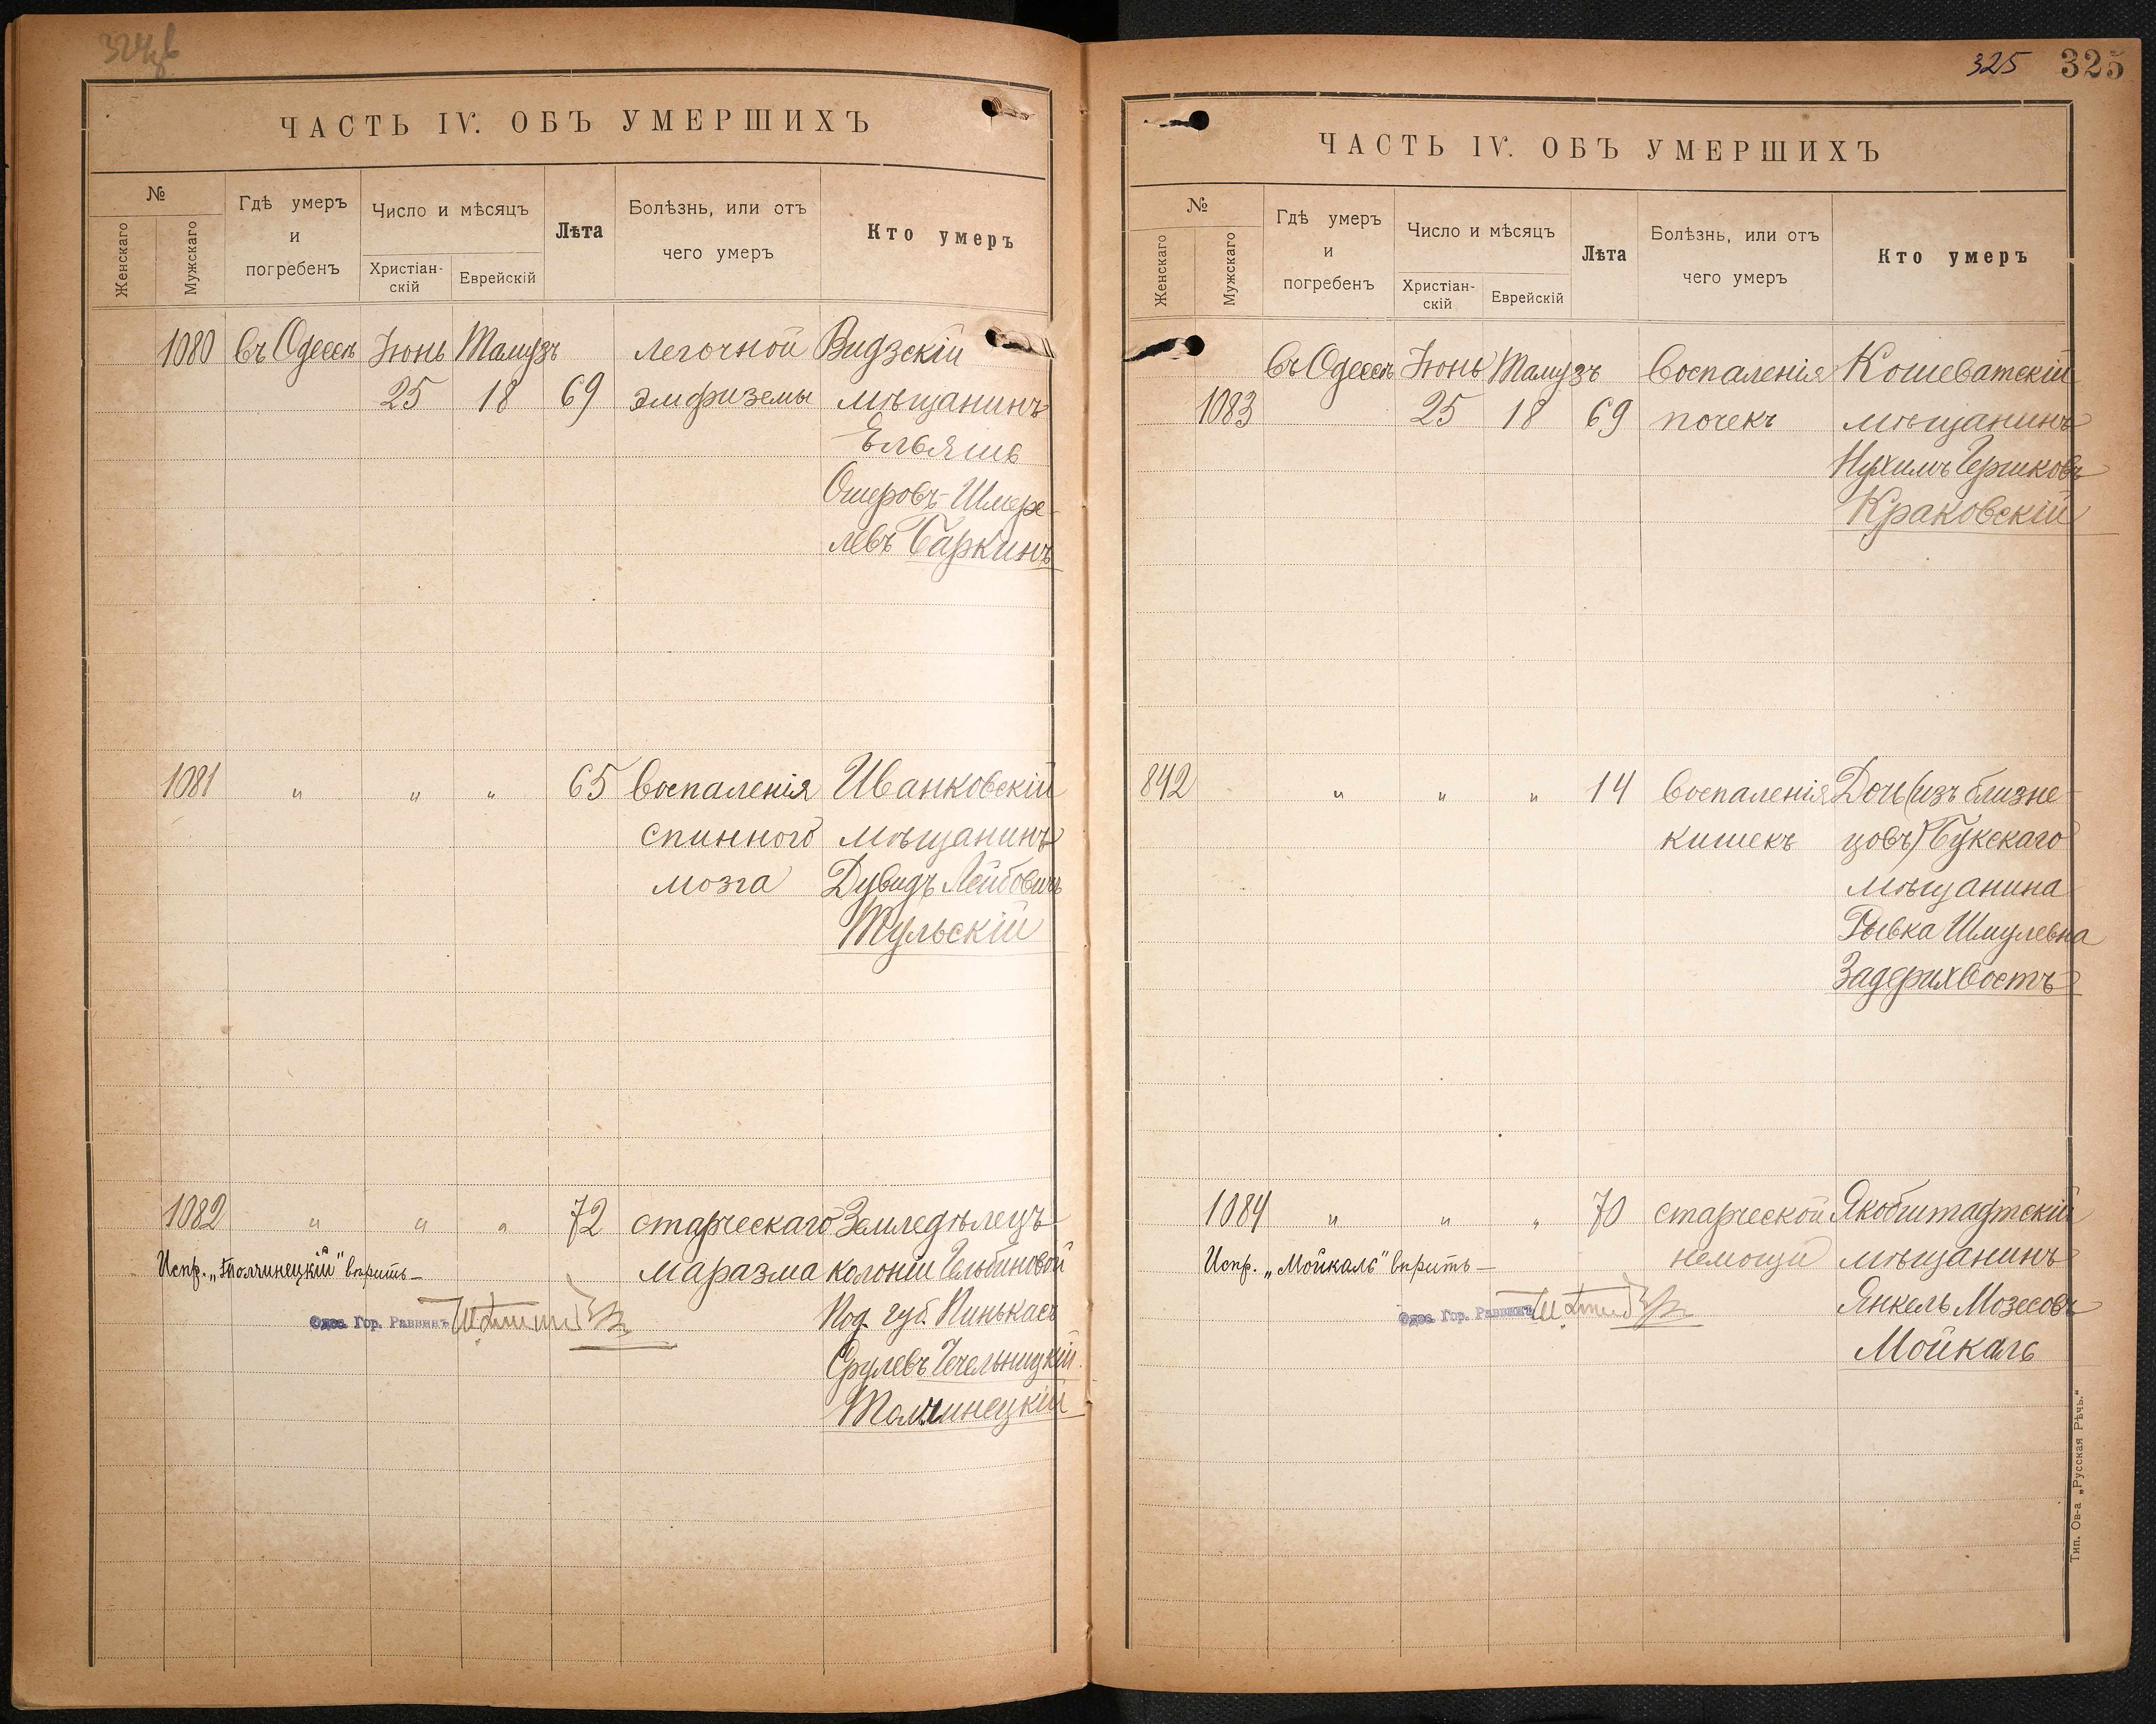 ЧАСТЬ IV. ОБЪ УМЕРШИХЪ
№
Женскаго
Мужскаго
Гдѣ умеръ
и
погребенъ
Число и мѣсяцъ
Христіан-
скій
Еврейскій
Лѣта
Болѣзнь, или отъ
чего умеръ
Кто умеръ
1080 въ Одессѣ Іюнь Тамузъ легочной Видзскій
25 18 69 эмфиземы мѣщанинъ
Ельяшъ
Ошеровъ-Шмере-
левъ Баркинъ
1081 " " " 65 воспаленія Иванковскій
спинного мѣщанинъ
мозга Дувидъ Лейбовичъ
Тульскій
1082 " " " 72 старческаго Земледѣлецъ
Испр. „Толчинецкій" вѣрить— маразма колоніи
Одес. Гор. Раввинъ Под. губ. Пинькасъ
Срулевъ Чечельницкій
Толчинецкій
325 325
ЧАСТЬ IV. ОБЪ УМЕРШИХЪ
№
Женскаго
Мужскаго
Гдѣ умеръ
и
погребенъ
Число и мѣсяцъ
Христіан-
скій
Еврейскій
Лѣта
Болѣзнь, или отъ
чего умеръ
Кто умеръ
въ Одессѣ Іюнь Тамузъ воспаленія Кошеватскій
1083 25 18 69 почекъ мѣщанинъ
Нухимъ Гершковъ
Краковскій
842 " " " 14 воспаленія Дочь (изъ близне-
кишекъ цовъ) Букскаго
мѣщанина
Рывка Шмулевна
Задерихвостъ
1084 " " " 70 старческой Якобштадтскій
Испр. „Мойкаль" вѣрить— немощи мѣщанинъ
Одес. Гор. Раввинъ Янкель Мозесовъ
Мойкаль
Тип. Ов-а „Русская Рѣчь."